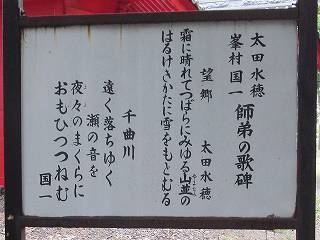 太田水穂
峯村国一 師弟の歌碑
望郷 太田水穂
霜に晴れてつばらにみゆる山並の
はるけきかたに雪をもとむる
千曲川
遠く落ちゆく
瀬の音を
夜々のまくらに
おもひつつねむ
国一